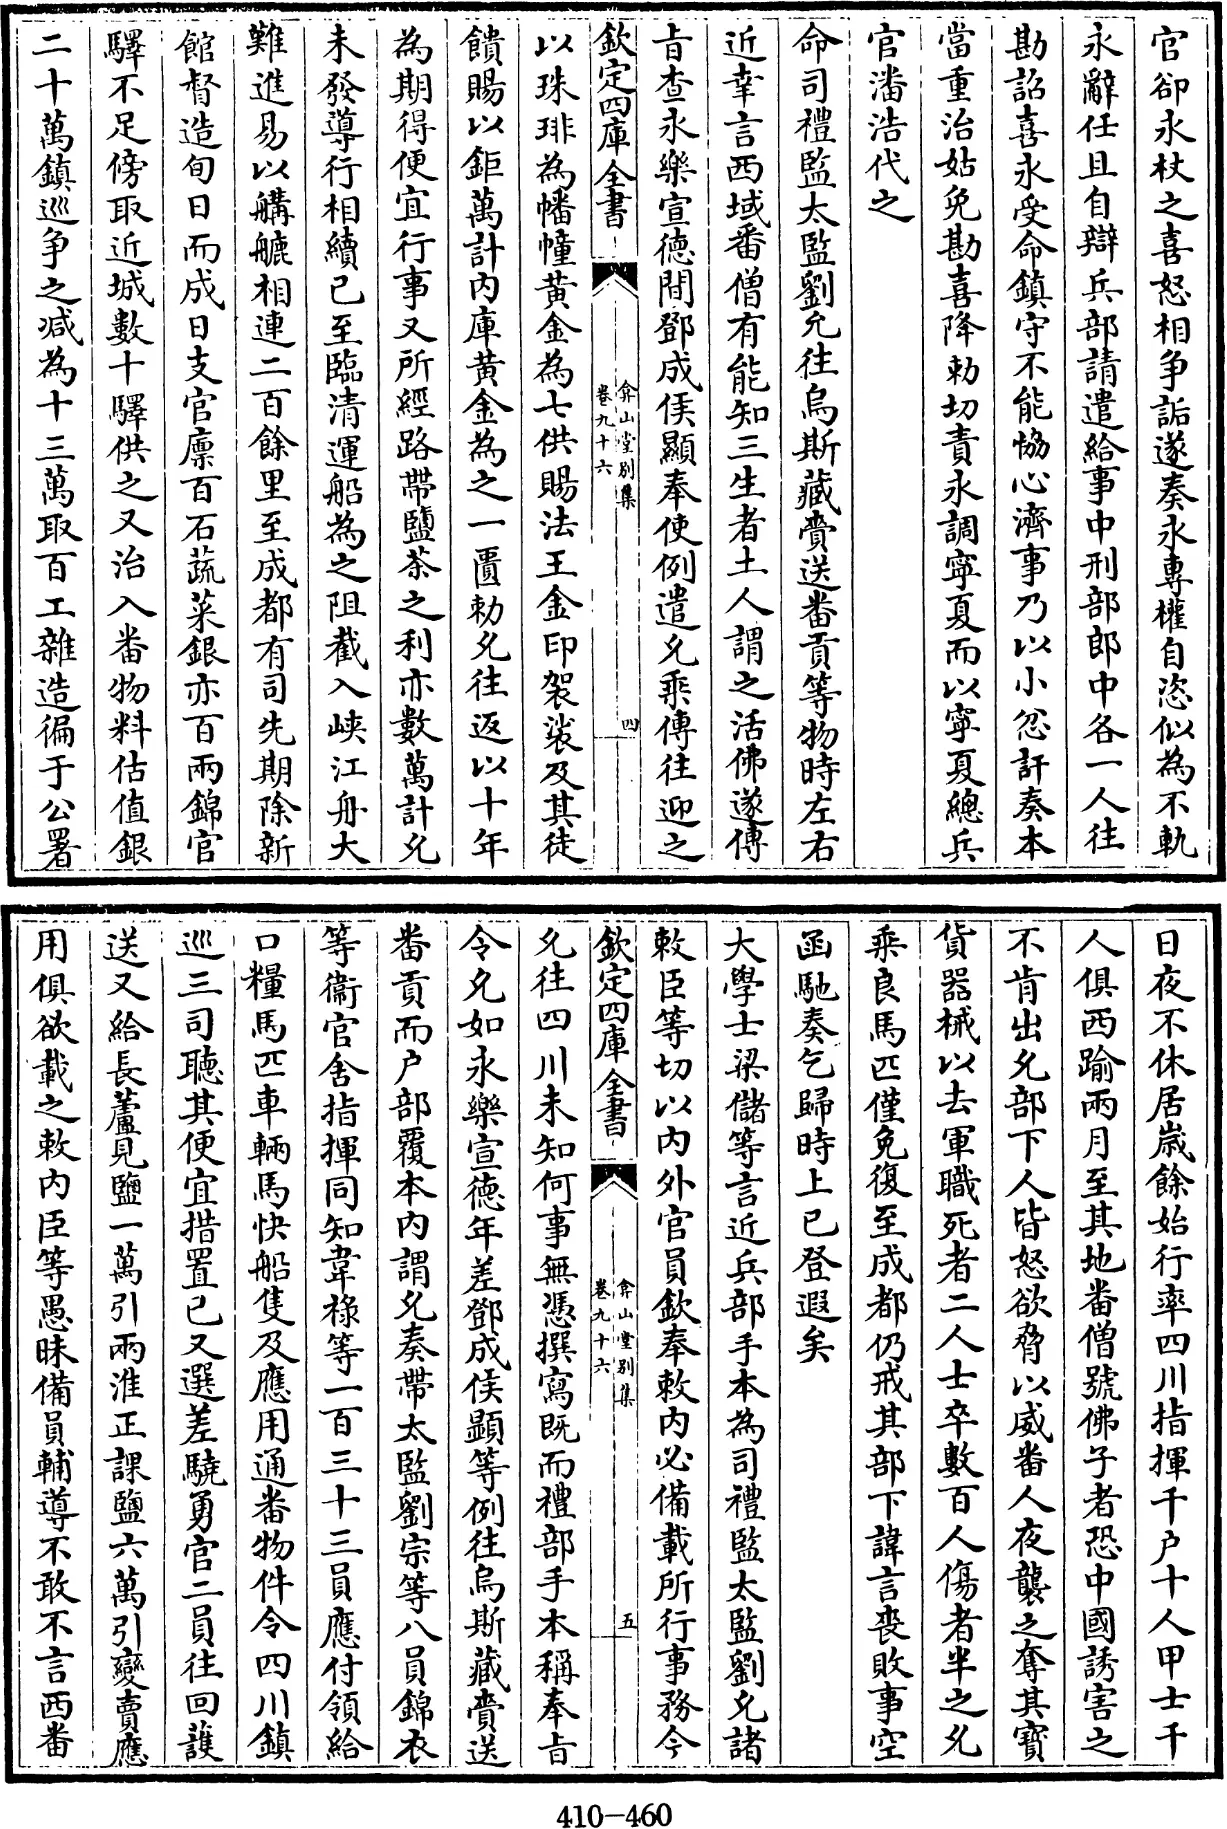 官卻永杖之喜怒相争詬遂奏永專權自恣似為不軌
永辭任且自辯兵部請遣給事中刑部郎中各一人往
勘詔喜永受命鎮守不能恊心濟事乃以小忿訐奏本
當重治姑免勘喜降勅切責永調寧夏而以寧夏總兵
官潘浩代之
命司禮監太監劉允往烏斯藏賫送畨貢等物時左右
近幸言西域畨僧有能知三生者土人謂之活佛遂傳
㫖查永樂宣德間鄧成侯顯奉使例遣允乘傳往迎之
欽定四庫全書
弇山堂别集
卷九十六
四
以珠琲為幡幢黄金為七供賜法王金印袈裟及其徒
饋賜以鉅萬計内庫黄金為之一匱勅允往返以十年
為期得便宜行事又所經路帶鹽茶之利亦數萬計允
未發導行相續已至臨清運船為之阻截入峡江舟大
難進易以艣艫相連二百餘里至成都有司先期除新
館督造旬日而成日支官廪百石蔬菜銀亦百兩錦官
驛不足傍取近城數十驛供之又治入畨物料估值銀
二十萬鎮巡争之减為十三萬取百工雜造徧于公署
日夜不休居歳餘始行率四川指揮千户十人甲士千
人俱西踰兩月至其地畨僧號佛子者恐中國誘害之
不肯出允部下人皆怒欲脅以威畨人夜襲之奪其寳
貨器械以去軍職死者二人士卒數百人傷者半之允
乘良馬匹僅免復至成都仍戒其部下諱言喪敗事空
函馳奏乞歸時上已登遐矣
大學士梁儲等言近兵部手本為司禮監太監劉允諸
敕臣等切以内外官員欽奉敕内必備載所行事務今
欽定四庫全書
弇山堂别集
卷九十六
五
允往四川未知何事無憑撰寫既而禮部手本稱奉㫖
令允如永樂宣徳年差鄧成侯顯等例往烏斯藏賫送
畨貢而户部覆本内謂允奏帶太監劉宗等八員錦衣
等衞官舍指揮同知韋禄等一百三十三員應付領給
口糧馬匹車輛馬快船隻及應用通畨物件令四川鎮
巡三司聽其便宜措置已又選差驍勇官二員往回護
送又給長蘆見鹽一萬引兩淮正課鹽六萬引變賣應
用俱欲載之敕内臣等愚昧備員輔導不敢不言西畨
410-460